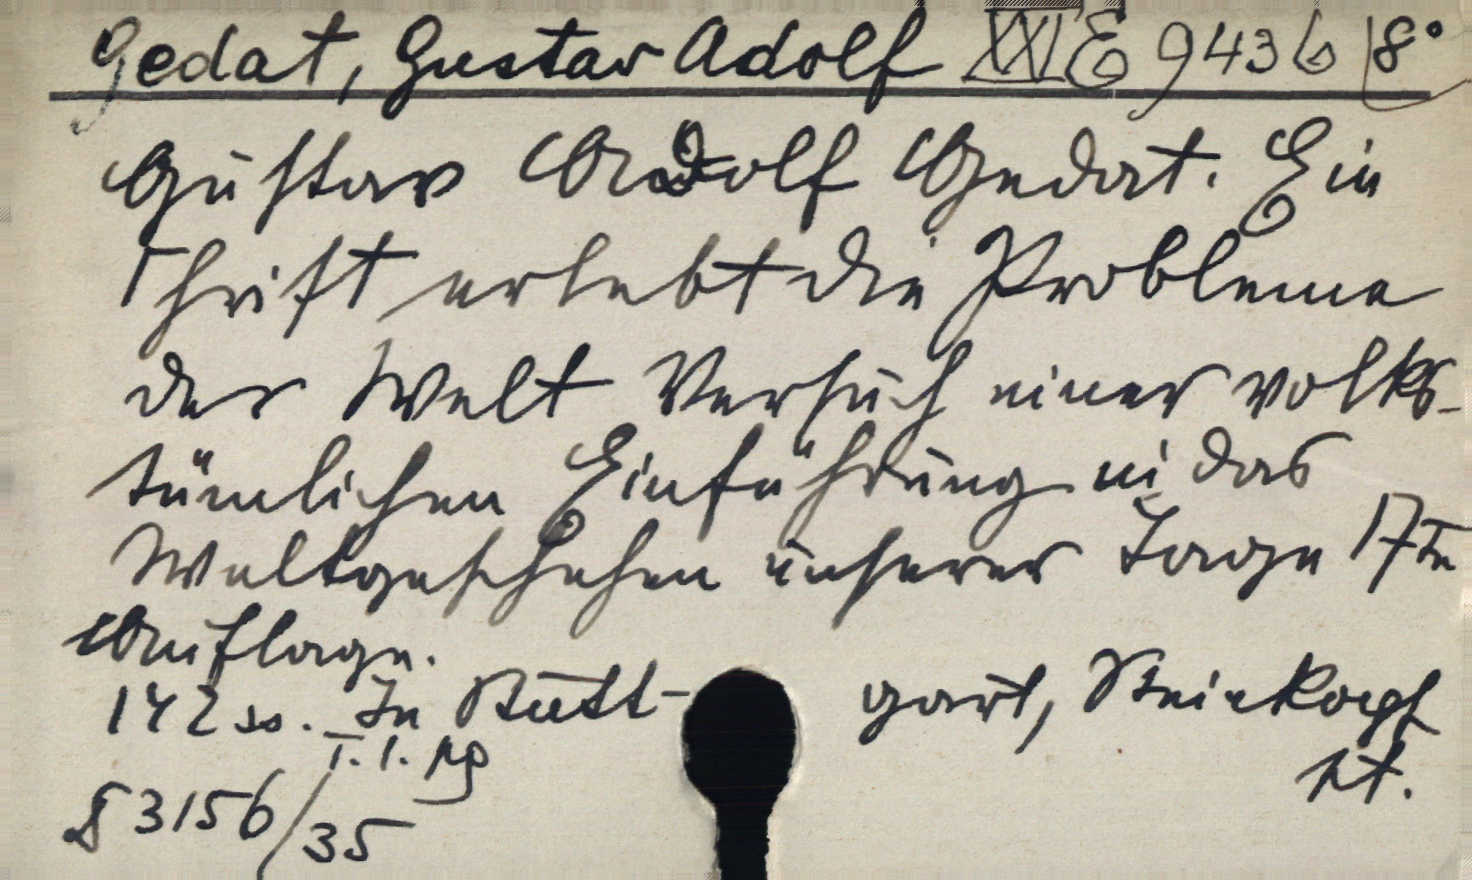 Gedat, Gustav Adolf XXI E 9436 8°
Gustav Adolf Gedat. Ein
Christ erlebt die Probleme
der Welt Versuch einer volks-
tümlichen Einführung in das
Weltgeschehen unserer Tage 17te
Auflage.
142 ss. In Stutt- gart, Steinkopf
T. 1. ng
§ 3156/35